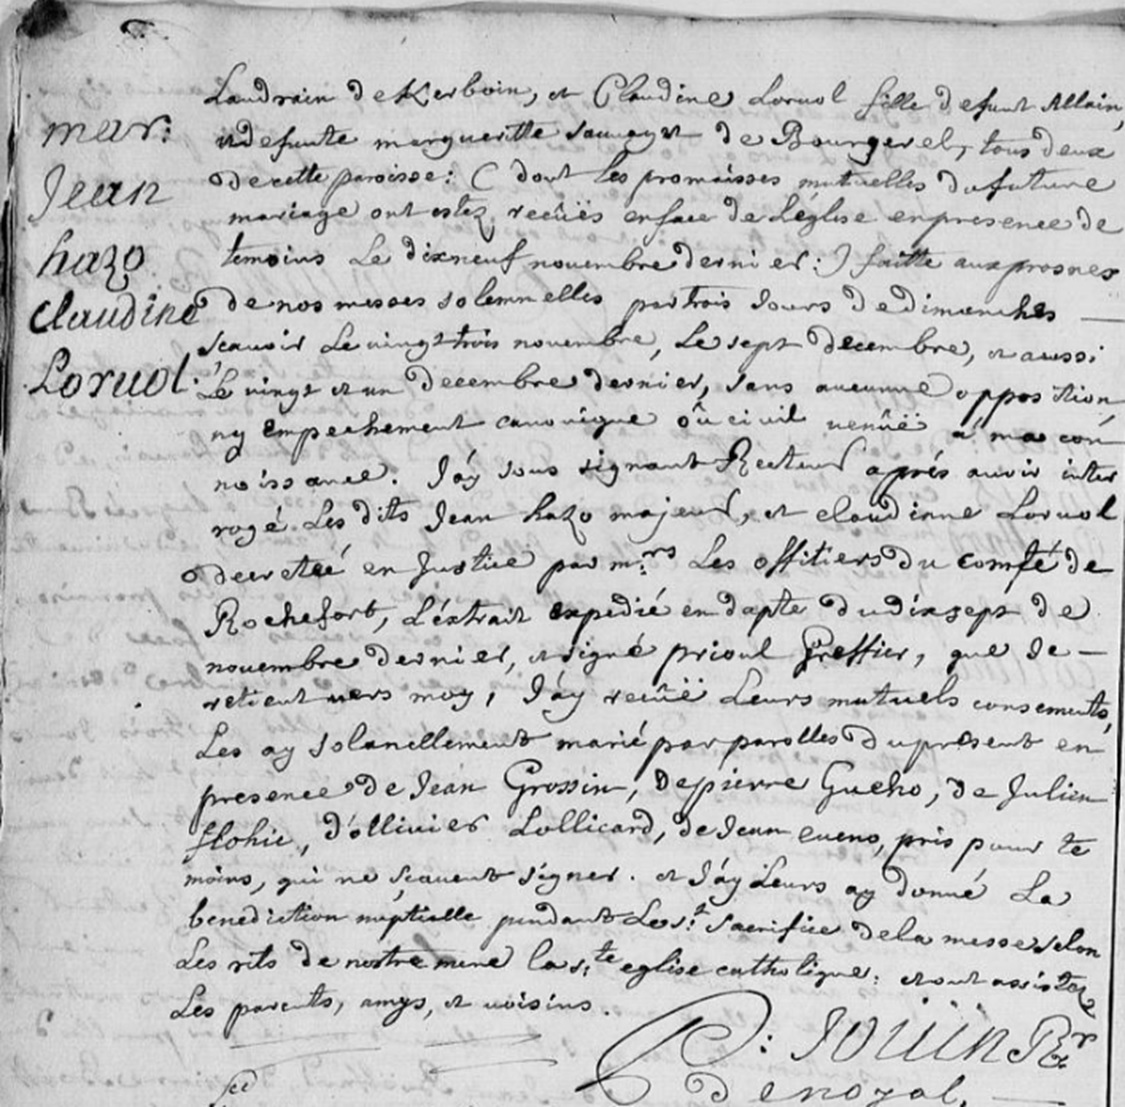 mar:
Jean
hazo
Claudine
Loruol.
Laudrain de Kerboin, et Claudine Loruol fille defunt Allain,
et defunte margueritte sauvaget de Bourgerel, tous deux
de cette paroisse: ( dont les promaisses mutuelles du future
mariage ont estez receües en face de L'église en presence de
temoins Le dixneuf novembre dernier:) faitte aux prosnes
de nos messes solemnelles par trois Jours de dimanches
scavoir Le vingt trois novembre, Le sept decembre, et aussi
Le vingt et un decembre dernier, sans aucunne opposition
ny empechement canonique oû civil venüe a ma con
noissance. J'áy sous signant Recteur aprés avoir inter
rogé Les dits Jean hazo majeur, et claudinne Loruol
decretée en Justice par m.rs Les offitiers du comté de
Rochefort, L'éxtrait expedié en dapte du dixsept de
novembre dernier, et signé prioul Greffier, que Je
retient vers moy, J'áy reçüe Leurs mutuels consements,
Les ay solanellement marié par parolles du présent en
presence de Jean Grossin, de pierre Gueho, de Julien
flohic, d'ollivier Lollicard, de Jean eveno, pris pour te
moins, qui ne scavent signer. et J'áy Leurs ay donné La
benediction nuptialle pendant Le s.t sacrifice de la messe selon
Les rits de nostre mere la s.te eglise catholique: et ont assistez
Les parents, amys, et voisins.
P: Jouin Rr
De noyal.